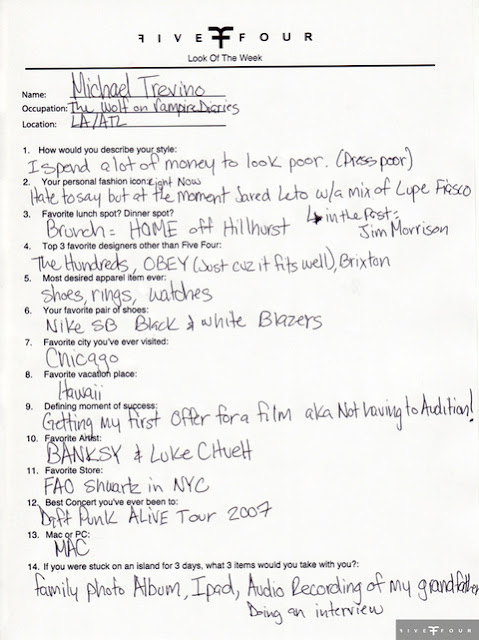 FIVE FOUR
Look Of The Week
Name: Michael Trevino
Occupation: The Wolf on Vampire Diaries
Location: LA/ATL
1. How would you describe your style:
I spend a lot of money to look poor. (Dress poor)
2. Your personal fashion icon: Right Now
Hate to say but at the moment Jared Leto w/a mix of Lupe Fiasco
3. Favorite lunch spot? Dinner spot? ↳ in the Past =
Brunch = HOME off Hillhurst Jim Morrison
4. Top 3 favorite designers other than Five Four:
The Hundreds, OBEY (Just cuz it fits well), Brixton
5. Most desired apparel item ever:
shoes, rings, watches
6. Your favorite pair of shoes:
Nike SB Black & white Blazers
7. Favorite city you've ever visited:
Chicago
8. Favorite vacation place:
Hawaii
9. Defining moment of success:
Getting my first Offer for a film aka Not having to Audition!
10. Favorite Artist:
BANKSY & Luke CHueH
11. Favorite Store:
FAO Shwartz in NYC
12. Best Concert you've ever been to:
Daft Punk ALiVE Tour 2007
13. Mac or PC:
MAC
14. If you were stuck on an island for 3 days, what 3 items would you take with you?:
family photo Album, Ipad, Audio Recording of my grandfather
Doing an interview
FIVE FOUR